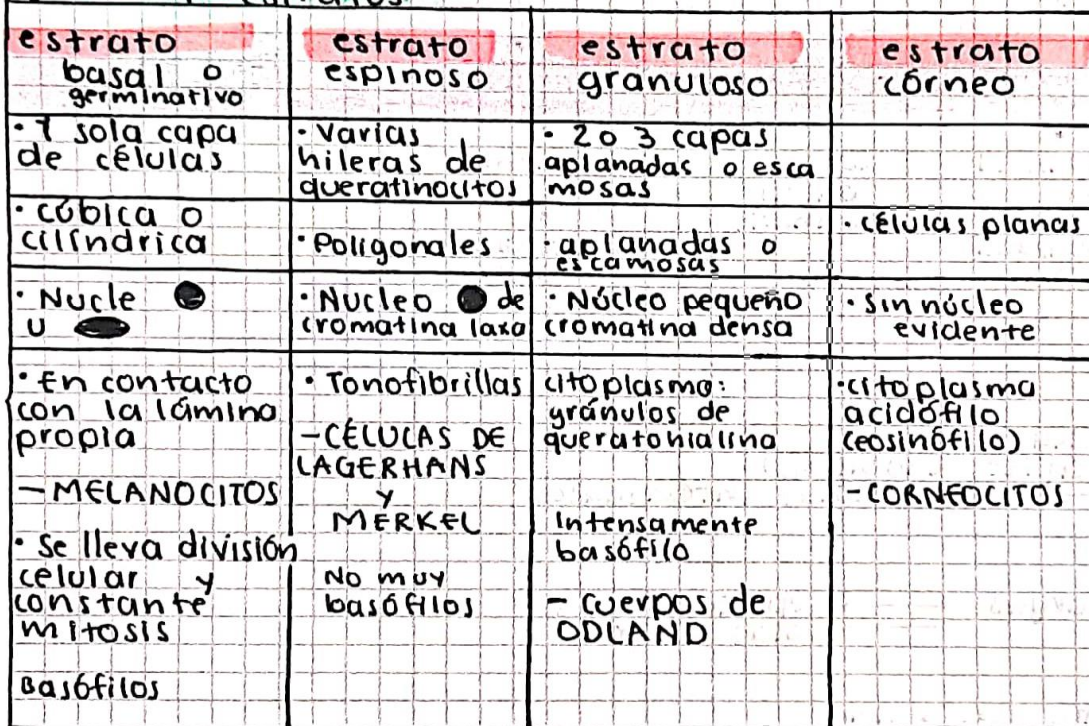 estrato
basal o
germinativo
estrato
espinoso
estrato
granuloso
estrato
córneo
• 1 sola capa
de células
• Varias
hileras de
queratinocitos
• 2 o 3 capas
aplanadas o esca
mosas
• cúbica o
cilíndrica
• Poligonales
• aplanadas o
escamosas
• células planas
• Nucle
u
• Nucleo de
cromatina laxa
• Núcleo pequeño
cromatina densa
• Sin núcleo
evidente
• En contacto
con la lámina
propia
- MELANOCITOS
• Se lleva división
celular y
constante
mitosis
Basófilos
• Tonofibrillas
- CÉLUCAS DE
LAGERHANS
y
MERKEL
No muy
basófilos
citoplasma:
gránulos de
queratohialina
Intensamente
basófilo
- Cuerpos de
ODLAND
• citoplasma
acidófilo
(eosinófilo)
- CORNEOCITOS